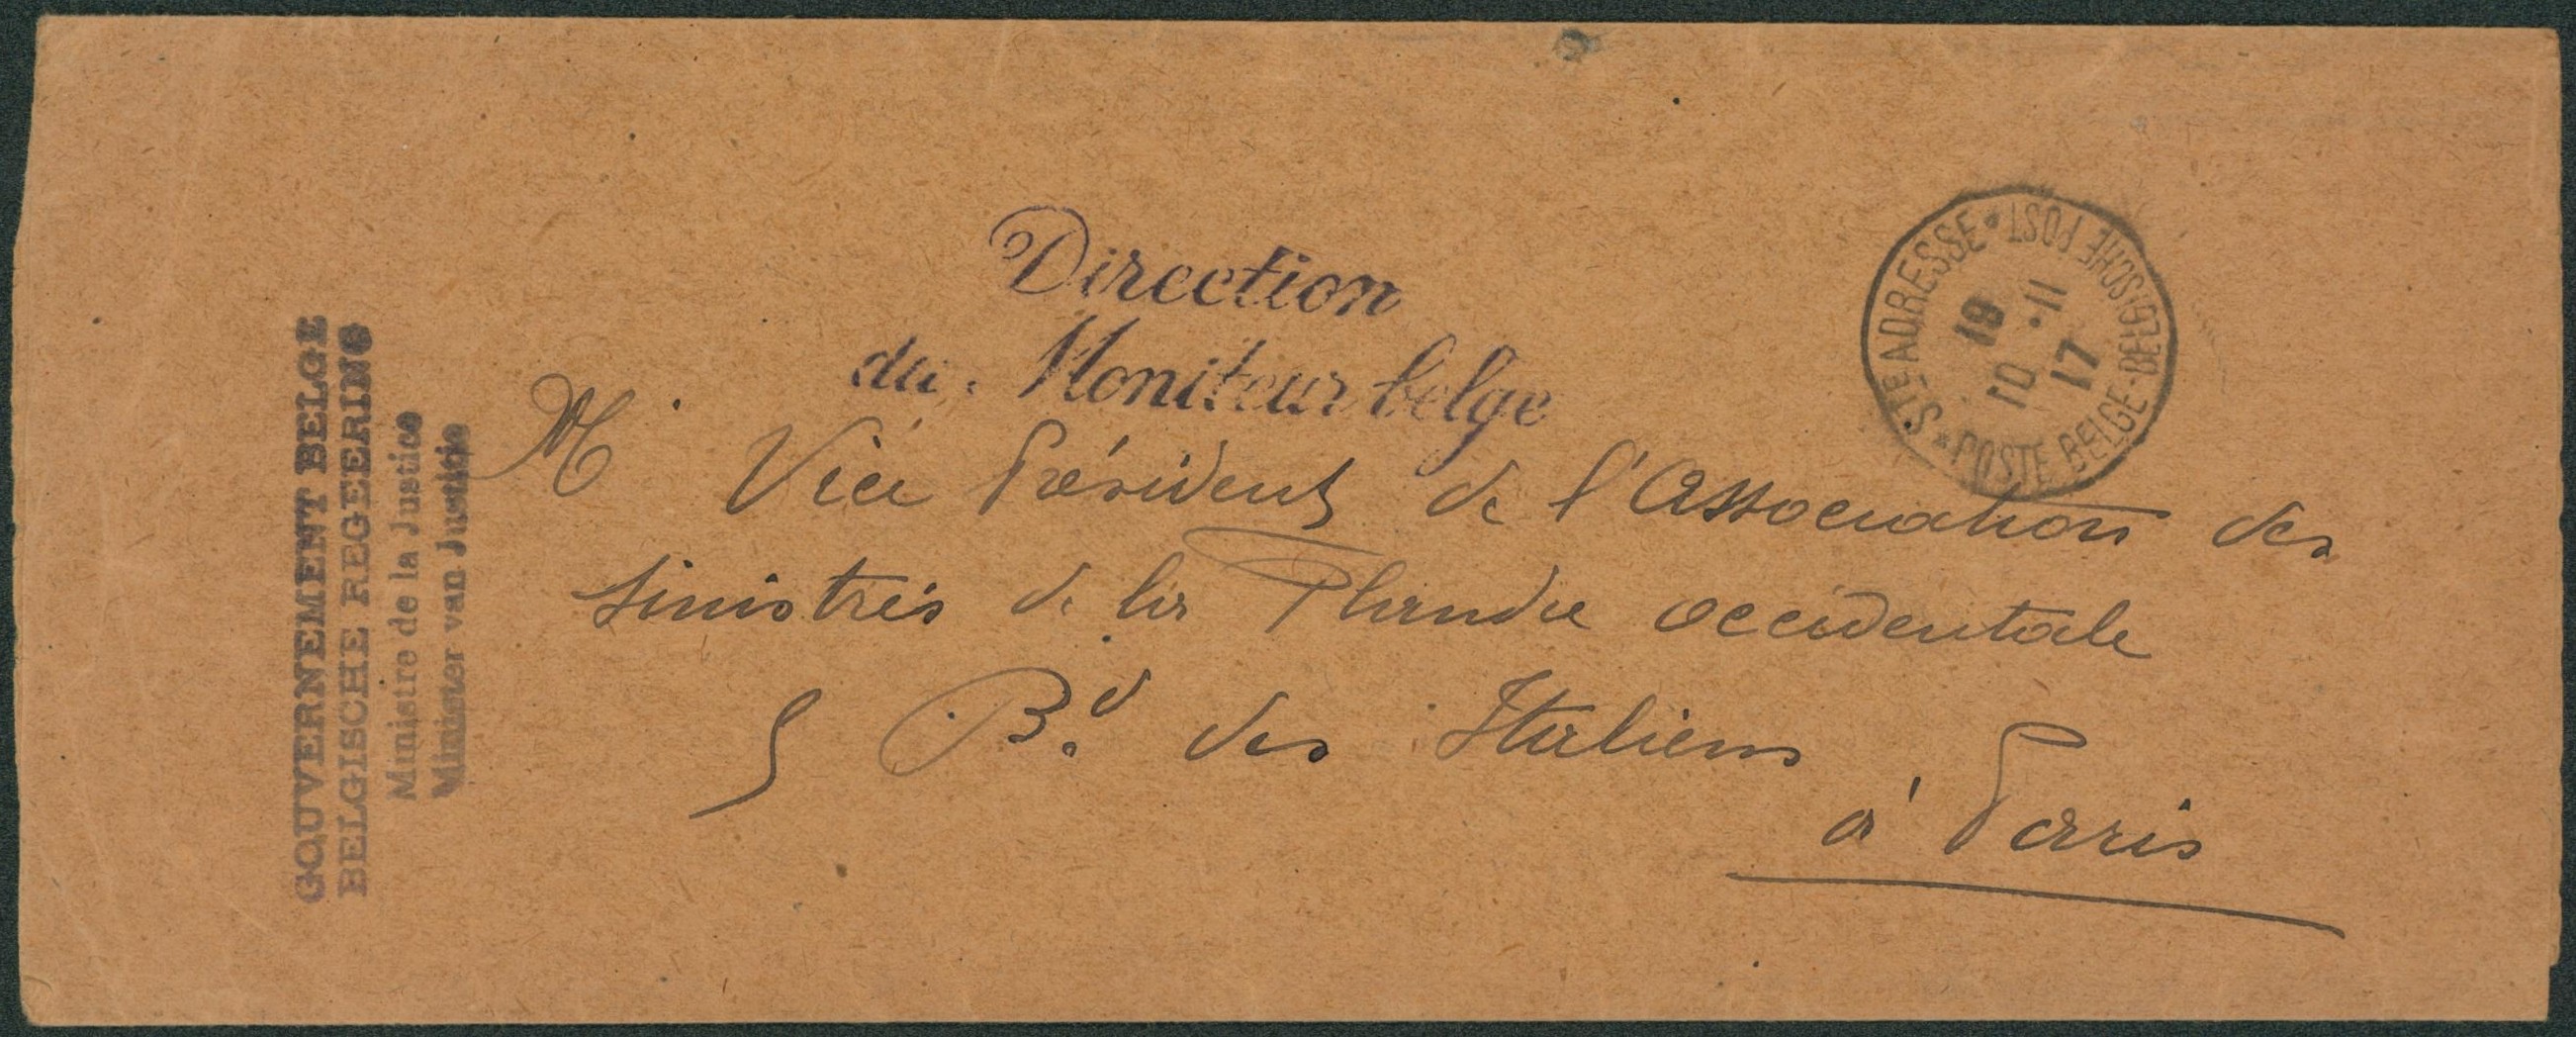 GOUVERNEMENT BELGE
BELGISCHE REGEERING
Ministre de la Justice
Minister van Justitie
Direction
du Moniteur belge
STE ADRESSE * POSTE BELGE-BELGISCHE POST *
19
10 -11
17
M Vice Président de l'Association des
sinistrés de la Flandre occidentale
5 Bd des Italiens
à Paris